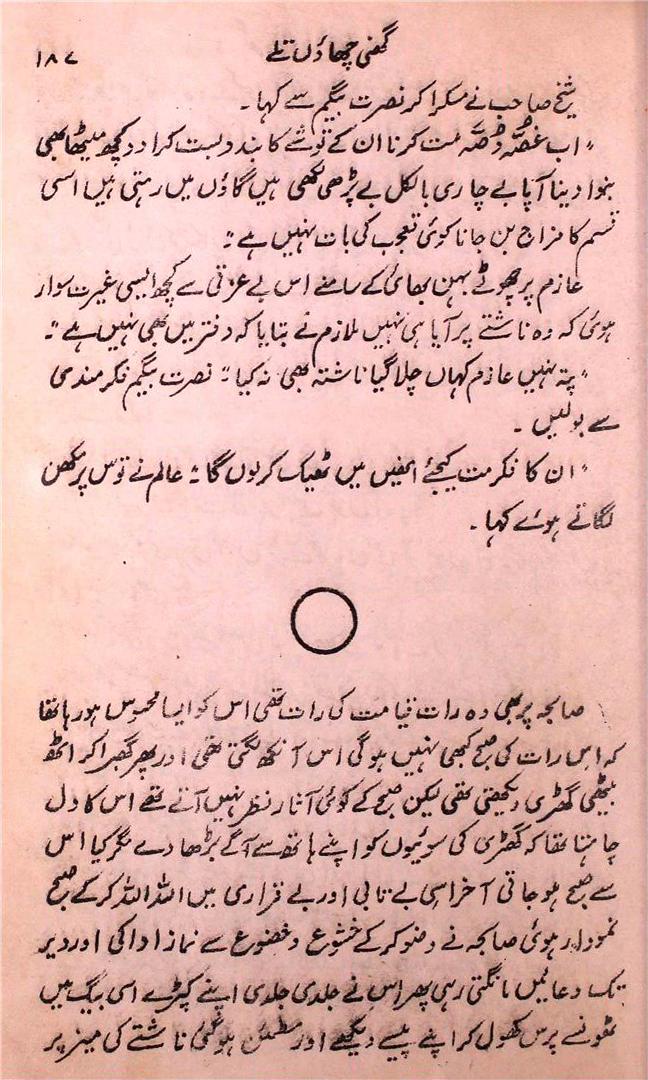 گھنی چھاؤں تلے
۱۸۷
شیخ صاحب نے مسکرا کر نصرت بیگم سے کہا۔
"اب غصّہ وصّہ مت کرنا ان کے توشے کا بندوبست کرا دو کچھ میٹھا بھی
بنوا دینا آپا بے چاری بالکل بے پڑھی لکھی ہیں گاؤں میں رہتی ہیں اسی
قسم کا مزاج بن جانا کوئی تعجب کی بات نہیں ہے"۔
عازم پر چھوٹے بہن بھائی کے سامنے اس بے عزتی سے کچھ ایسی غیرت سوار
ہوئی کہ وہ ناشتے پر آیا ہی نہیں ملازم نے بتایا کہ دفتر میں بھی نہیں ہے"۔
"پتہ نہیں عازم کہاں چلا گیا ناشتہ بھی نہ کیا" نصرت بیگم فکرمندی
سے بولیں۔
"ان کا فکر مت کیجئے انھیں میں ٹھیک کر لوں گا" عالم نے توس پر مکھن
لگاتے ہوئے کہا۔
صابحہ پر بھی وہ رات قیامت کی رات تھی اس کو ایسا محسوس ہو رہا تھا
کہ اس رات کی صبح کبھی نہیں ہو گی اس آنکھ لگتی تھی اور پھر گھبرا کر اٹھ
بیٹھی گھڑی دیکھتی تھی لیکن صبح کے کوئی آثار نظر نہیں آتے تھے اس کا دل
چاہتا تھا کہ گھڑی کی سوئیوں کو اپنے ہاتھ سے آگے بڑھا دے مگر کیا اس
سے صبح ہو جاتی آخر اسی بے تابی اور بے قراری میں اللہ اللہ کر کے صبح
نمودار ہوئی صابحہ نے وضو کر کے خشوع و خضوع سے نماز ادا کی اور دیر
تک دعائیں مانگتی رہی پھر اس نے جلدی جلدی اپنے کپڑے اسی بیگ میں
ٹھونسے پرس کھول کر اپنے پیسے دیکھے اور مطمئن ہو گئی ناشتے کی میز پر